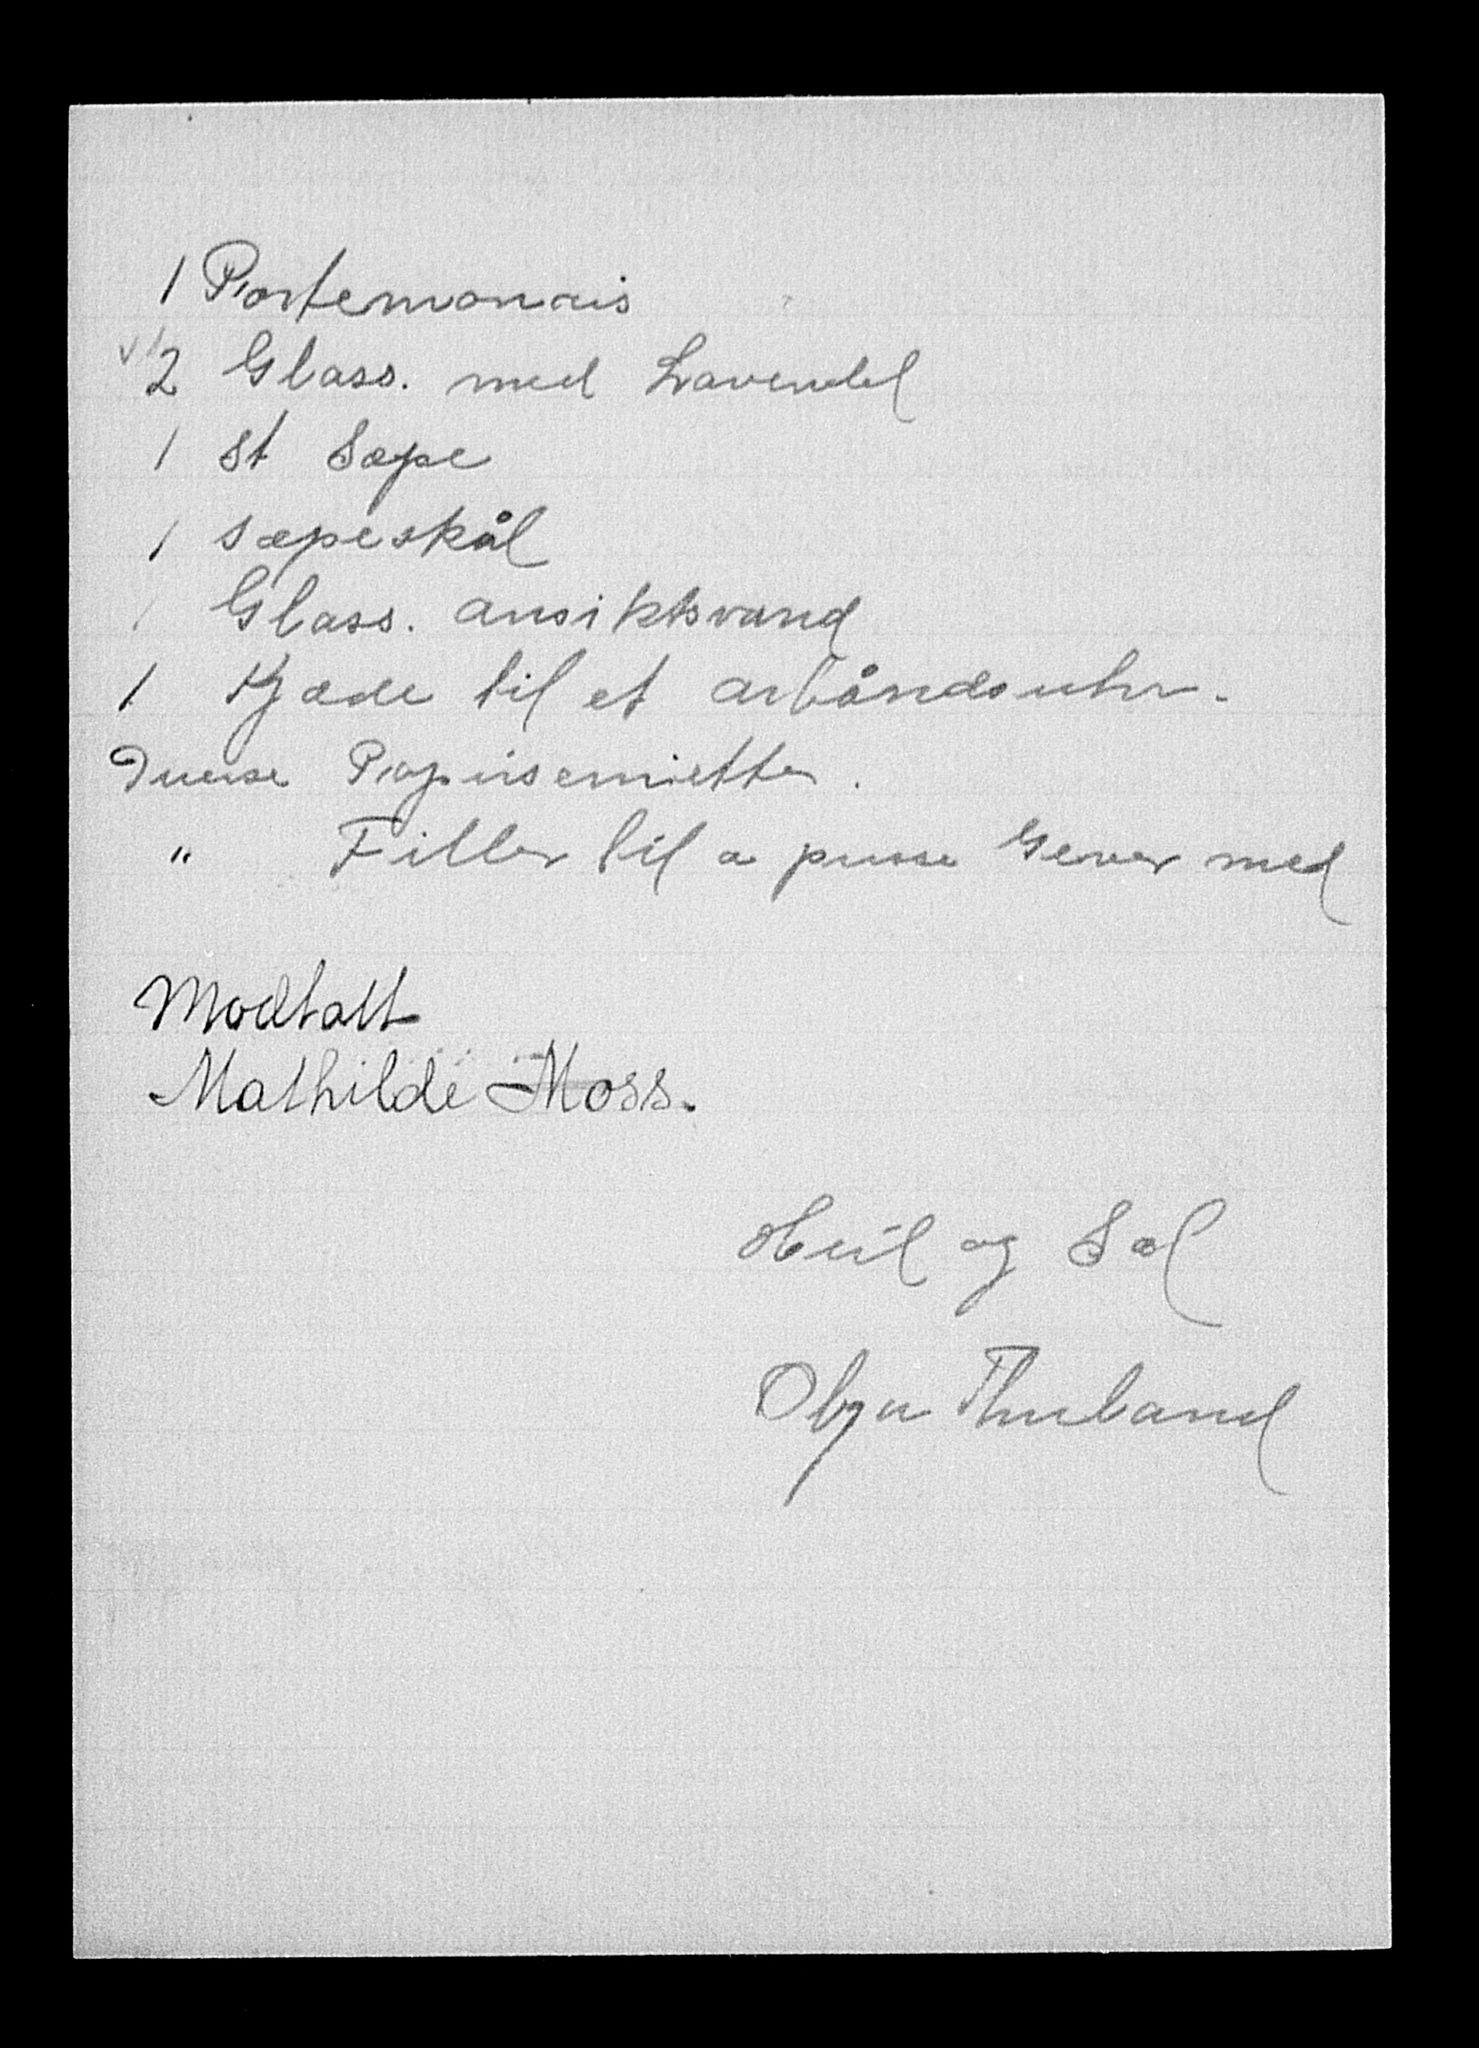 1 Portemonais
2 Glass. med Lavendel
1 st Sæpe
1 sæpeskål
1 Glass. ansiktsvand
1 Kjæde til et arbåndsuhr.
Diverse Papirservietter.
" Filler til a pusse Gever med
Modtatt
Mathilde Moss.
Heil og Sæl
Olga